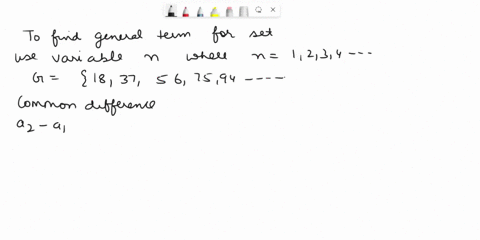 To find general term for set
use variable n where n = 1, 2, 3, 4 ----
G = { 18, 37, 56, 75, 94 -----
Common difference
a₂ - a₁